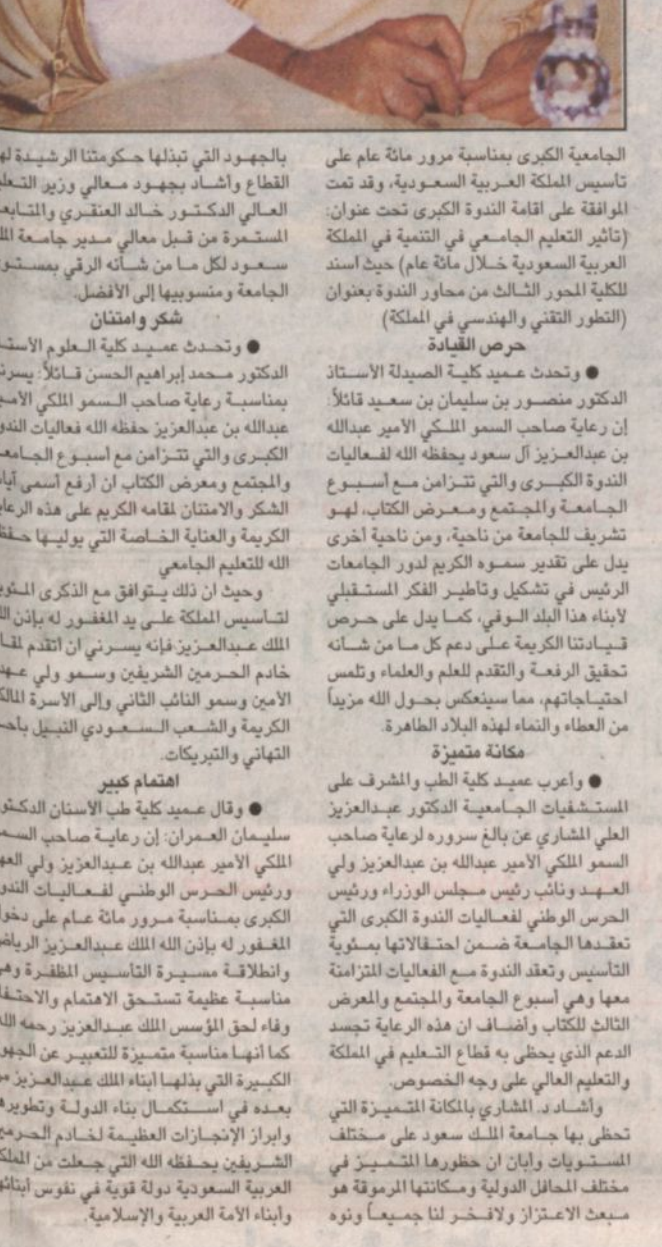 الجامعية الكبرى بمناسبة مرور مائة عام على
تأسيس المملكة العربية السعودية، وقد تمت
الموافقة على اقامة الندوة الكبرى تحت عنوان:
(تأثير التعليم الجامعي في التنمية في المملكة
العربية السعودية خلال مائة عام) حيث اسند
للكلية المحور الثالث من محاور الندوة بعنوان
(التطور التقني والهندسي في المملكة)
حرص القيادة
● وتحدث عميد كلية الصيدلة الأستاذ
الدكتور منصور بن سليمان بن سعيد قائلاً:
إن رعاية صاحب السمو الملكي الأمير عبدالله
بن عبدالعزيز آل سعود يحفظه الله لفعاليات
الندوة الكبرى والتي تتزامن مع أسبوع
الجامعة والمجتمع ومعرض الكتاب، لهو
تشريف للجامعة من ناحية، ومن ناحية أخرى
يدل على تقدير سموه الكريم لدور الجامعات
الرئيس في تشكيل وتأطير الفكر المستقبلي
لأبناء هذا البلد الوفي، كما يدل على حرص
قيادتنا الكريمة على دعم كل ما من شأنه
تحقيق الرفعة والتقدم للعلم والعلماء وتلمس
احتياجاتهم، مما سينعكس بحول الله مزيداً
من العطاء والنماء لهذه البلاد الطاهرة.
مكانة متميزة
● وأعرب عميد كلية الطب والمشرف على
المستشفيات الجامعية الدكتور عبدالعزيز
العلي المشاري عن بالغ سروره لرعاية صاحب
السمو الملكي الأمير عبدالله بن عبدالعزيز ولي
العهد ونائب رئيس مجلس الوزراء ورئيس
الحرس الوطني لفعاليات الندوة الكبرى التي
تعقدها الجامعة ضمن احتفالاتها بمئوية
التأسيس وتعقد الندوة مع الفعاليات المتزامنة
معها وهي أسبوع الجامعة والمجتمع والمعرض
الثالث للكتاب وأضاف ان هذه الرعاية تجسد
الدعم الذي يحظى به قطاع التعليم في المملكة
والتعليم العالي على وجه الخصوص.
وأشاد د. المشاري بالمكانة المتميزة التي
تحظى بها جامعة الملك سعود على مختلف
المستويات وأبان ان حظورها المتميز في
مختلف المحافل الدولية ومكانتها المرموقة هو
مبعث الاعتزاز ولافخر لنا جميعاً ونوه
بالجهود التي تبذلها حكومتنا الرشيدة
القطاع وأشاد بجهود معالي وزير
العالي الدكتور خالد العنقري
المستمرة من قبل معالي مدير جامعة
سعود لكل ما من شأنه الرقي
الجامعة ومنسوبيها إلى الأفضل.
شكر وامتنان
● وتحدث عميد كلية العلوم
الدكتور محمد إبراهيم الحسن قائلاً:
بمناسبة رعاية صاحب السمو الملكي
عبدالله بن عبدالعزيز حفظه الله فعاليات
الكبرى والتي تتزامن مع أسبوع
والمجتمع ومعرض الكتاب ان أرفع أسمى
الشكر والامتنان لمقامه الكريم على هذه
الكريمة والعناية الخاصة التي يوليها
الله للتعليم الجامعي
وحيث ان ذلك يتوافق مع الذكرى
لتأسيس المملكة على يد المغفور له بإذن
الملك عبدالعزيز فإنه يسرني ان أتقدم
خادم الحرمين الشريفين وسمو ولي
الأمين وسمو النائب الثاني وإلى الأسرة
الكريمة والشعب السعودي النبيل
التهاني والتبريكات.
اهتمام كبير
● وقال عميد كلية طب الأسنان
سليمان العمران: إن رعاية صاحب
الملكي الأمير عبدالله بن عبدالعزيز ولي
ورئيس الحرس الوطني لفعاليات
الكبرى بمناسبة مرور مائة عام على
المغفور له بإذن الله الملك عبدالعزيز
وانطلاقة مسيرة التأسيس المظفرة
مناسبة عظيمة تستحق الاهتمام
وفاء لحق المؤسس الملك عبدالعزيز رحمه
كما أنها مناسبة متميزة للتعبير عن
الكبيرة التي بذلها أبناء الملك عبدالعزيز
بعده في استكمال بناء الدولة
وابراز الإنجازات العظيمة لخادم
الشريفين يحفظه الله التي جعلت من
العربية السعودية دولة قوية في نفوس
وأبناء الأمة العربية والإسلامية.